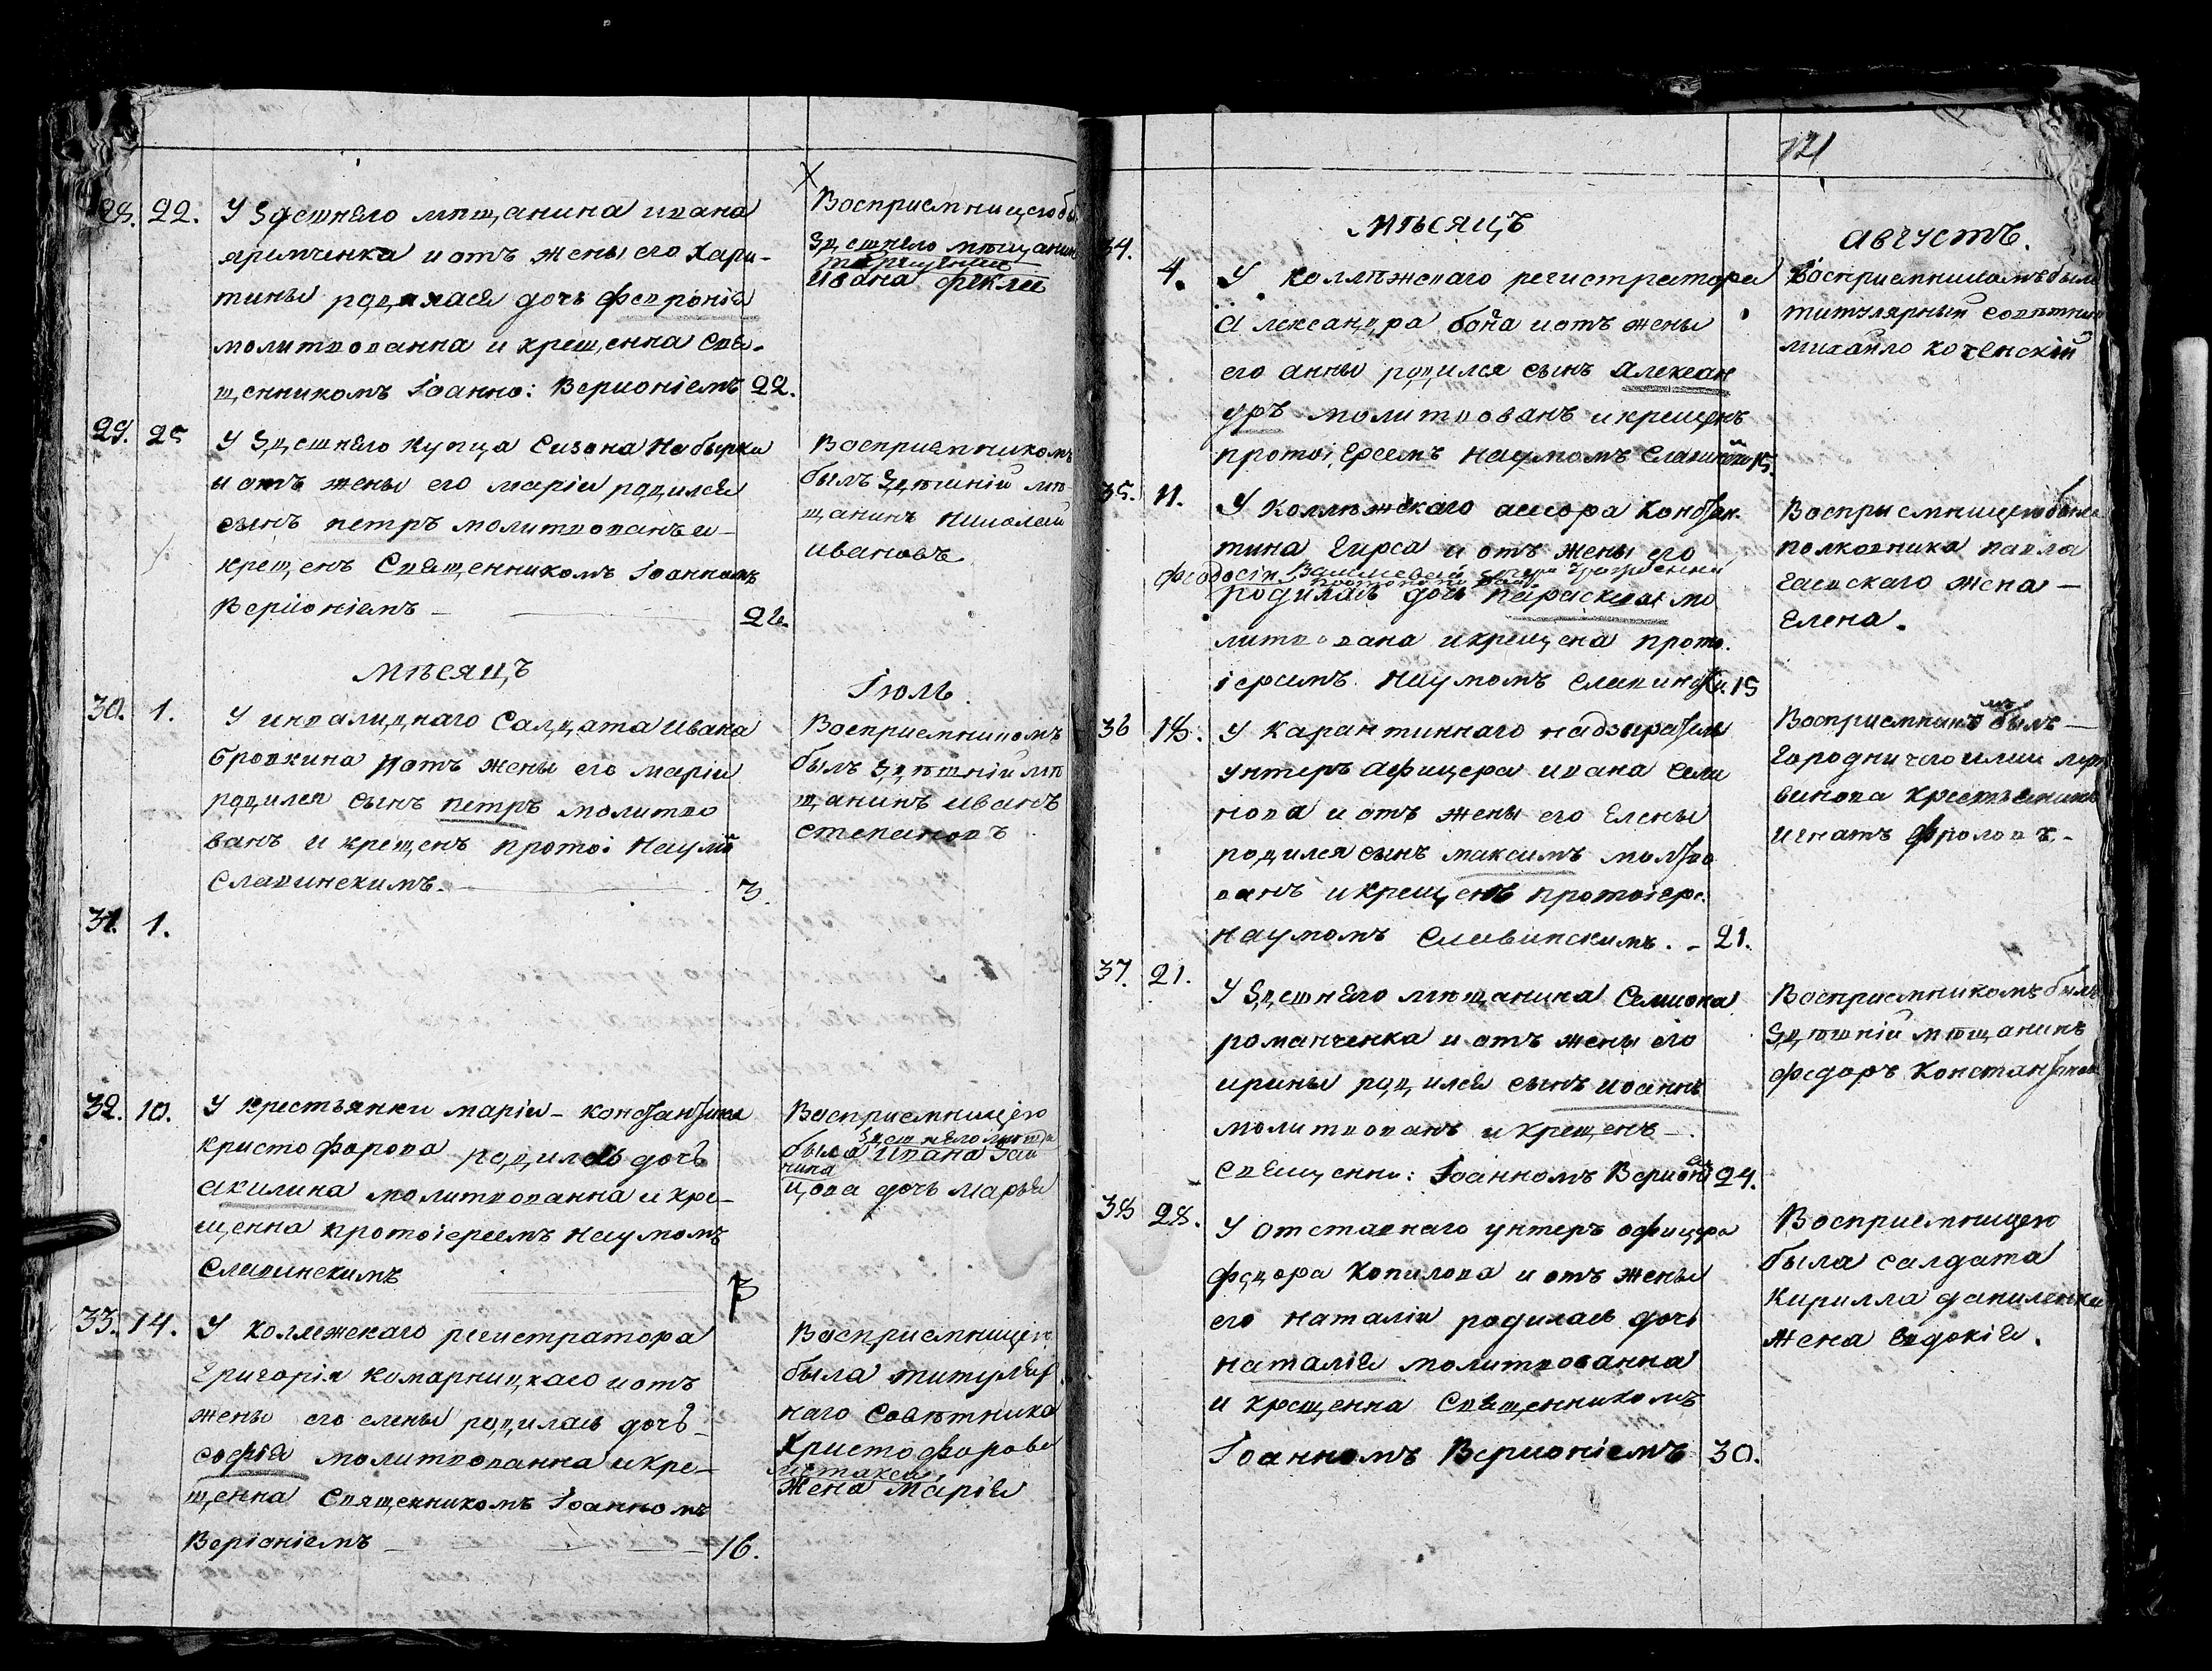 28. 22. У Здешнего мпщанина ивана
яремченка и отъ жены его Хари-
тины родилася дочь феврония
молитвованна и крещенна Свя-
щенникомъ Iоанно: Верионiемъ 22.
Восприемницею бы
Здешнего мѣщанин
ивана фекла
29. 25 У Здешнего купца Сизона Набырка
и отъ жены его марiи родился
сынъ петръ молитвованъ и
крещенъ Священникомъ Iоанномъ
Верiонiемъ 26.
Восприемникомъ
былъ Здѣшнiй мѣ
щанинъ Николай
ивановъ
мѣсяцъ
Iюль.
30. 1. У инвалиднаго Салдата Ивана
бровкина и отъ жены его марiи
родился сынъ петръ молитво
ванъ и крещенъ протоi Наумо
Славинскимъ. 3.
Восприемникомъ
былъ Здѣшнiй мѣ
щанинъ иванъ
степановъ
31. 1.
32. 10. У крестьянки марiи - константина
кристофорова родилась дочь
акилина молитвованна и кре-
щенна протоiереемъ Наумомъ
Славинскимъ
Восприемницею
Здешнего мѣща
была ивана Зай
нина
цова дочь марья
33. 14. У колежскаго регистратора
Григорiя комарницкаго и отъ
жены его елены родилась дочь
софiя молитвованна и кре-
щенна Священникомъ Iоанномъ
Верiонiемъ 16.
Восприемницею
была титуляр
наго Совѣтника
Христофорова
метакса
жена Марiя
121
мѣсяцъ
августъ.
34. 4. У колѣжскаго регистратора
александра и отъ жены
его анны родился сынъ алексан
дръ молитвованъ и крещенъ
протоiереемъ Наумомъ Славинским 15.
Восприемникомъ былъ
титулярный совѣтник
михайло коченскiй
35. 11. У Колѣжскаго асесора Констан
тина Гирса и отъ жены его
феодосiи
родилась дочь параскева мо
литвована и крещена прото
iереемъ Наумомъ Славински. 15
Восприемницею была
полковника павла
жена -
Елена.
36 18. У карантиннаго надзирателя
унтеръ афицера ивана Сели
нова и отъ жены его Елены
родился сынъ максимъ молтво
ванъ и крещенъ протоiере.
Наумомъ Славинскимъ. - 21.
Восприемникомъ былъ -
Городничего
винова крестьянинъ
игнатъ фроловъ. -
37. 21. У Здешнего мѣщанина Семиона
романченка и отъ жены его
ирины родился сынъ иоаннъ
молитвованъ и крещенъ -
Священни: Iоанномъ Верионiем 24.
Восприемникомъ былъ
Здѣшнiй мѣщанинъ
федоръ Константинов
38 28. У отставнаго унтеръ офицера
федора Копилова и отъ жены
его наталiи родилась дочь
наталiя молитвованна
и крещенна Священникомъ
Iоанномъ Верионiемъ 30.
Восприемницею
была салдата
Кирилла даниленка
жена Евдокiя.